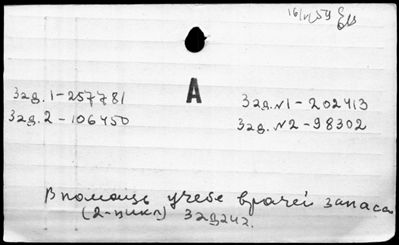 А
Зад. 1-257781
Зад. 2-106450
Зад. №1-202413
Зад. №2-98302
В помощь учебе врачей запаса
(2-цикл) задач.